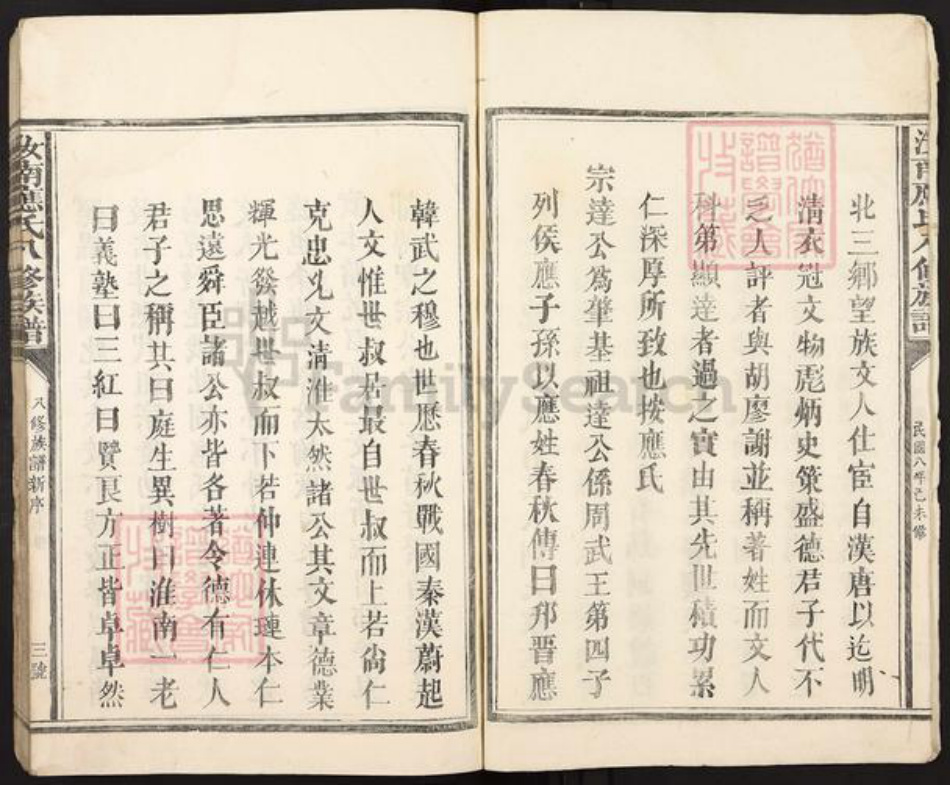 北三鄉望族文人仕宦自漢唐以迄明
清衣冠文物彪炳史策盛德君子代不
乏人評者與胡廖謝並稱著姓而文人
科第顯達者過之實由其先世積功累
仁深厚所致也按應氏
宗達公爲肇基祖達公係周武王第四子
列侯應子孫以應姓春秋傳曰邘晋應
民國八年己未修
韓武之穆也世歷春秋戰國秦漢蔚起
人文惟世叔君最自世叔而上若尙仁
克忠凡文清淮太然諸公其文章德業
輝光發越世叔而下若仲連休璉本仁
思遠舜臣諸公亦皆各著令德有仁人
君子之稱其曰庭生異樹曰淮南一老
曰義塾曰三紅曰賢良方正皆卓卓然
汝南應氏八修族譜
八修族譜新序
三號
FamilySearch